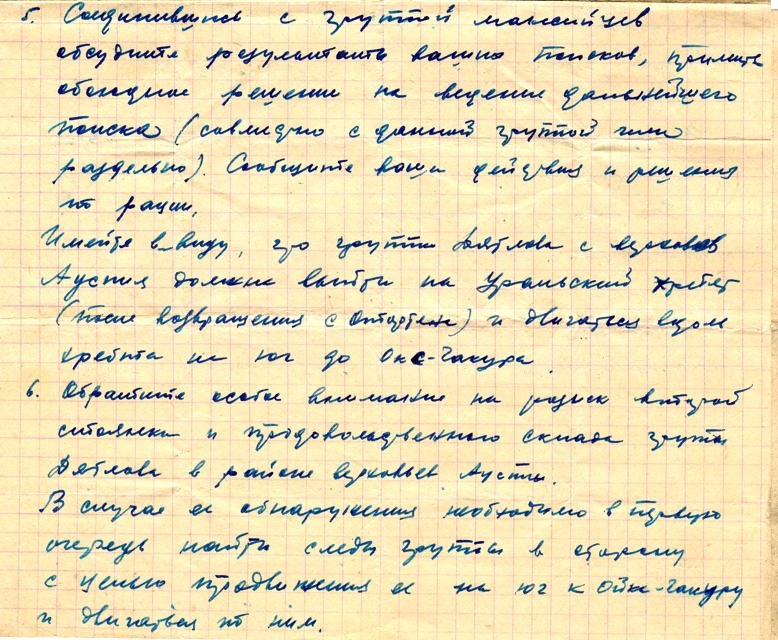 5. Соединившись с группой мансийцев
обсудите результаты ваших поисков, примите
обоюдное решение на ведение дальнейшего
поиска (совместно с данной группой или
раздельно). Сообщите ваши действия и решения
по рации.
Имейте в виду, что группа Дятлова с верховьев
Ауспия должна выйти на Уральский хребет
(после возвращения с Отортена) и двигаться вдоль
хребта на юг до Ойко-Чакура
6. Обратите особое внимание на розыск второй
стоянки и продовольственного склада группы
Дятлова в районе верховьев Ауспии.
В случае ее обнаружения необходимо в первую
очередь найти следы группы в сторону
с целью продвижения ее на юг к Ойко-Чакуру
и двигаться по ним.